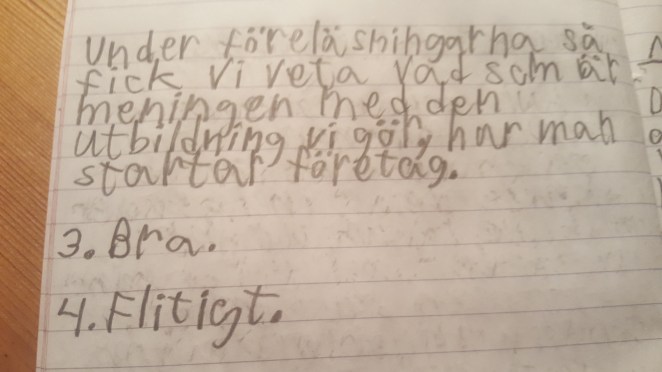 Under föreläsningarna så
fick vi veta vad som är
meningen med den
utbildning vi gör, hur man
startar företag.
3. Bra.
4. Flitigt.